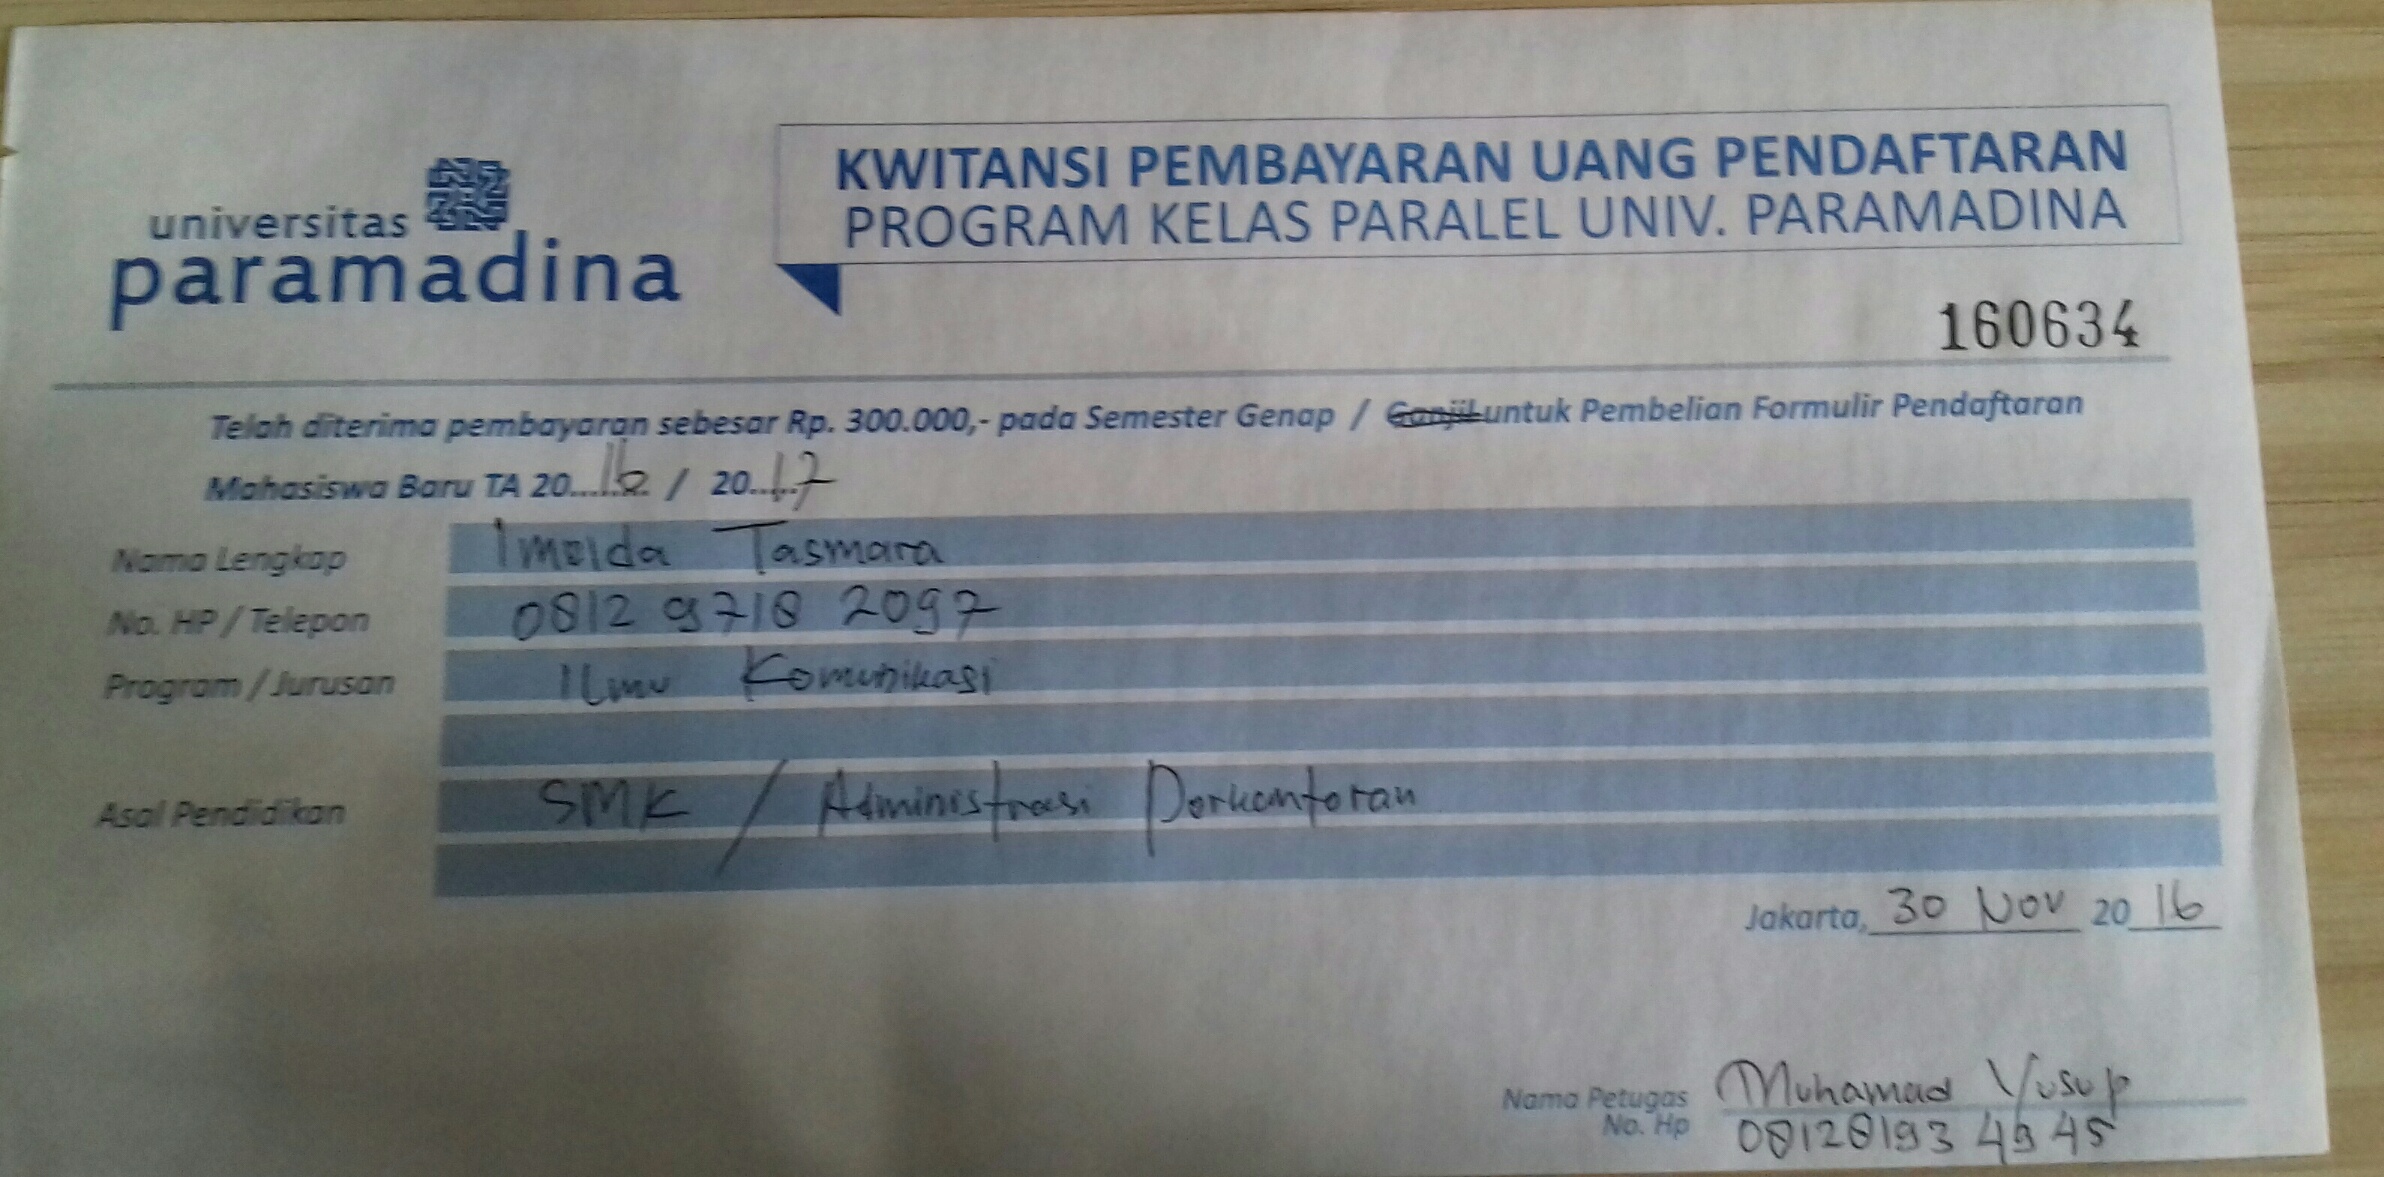 universitas
paramadina
KWITANSI PEMBAYARAN UANG PENDAFTARAN
PROGRAM KELAS PARALEL UNIV. PARAMADINA
160634
Telah diterima pembayaran sebesar Rp. 300.000,- pada Semester Genap / Ganjil untuk Pembelian Formulir Pendaftaran
Mahasiswa Baru TA 20...16.. / 20..17
Nama Lengkap Imelda Tasmara
No. HP / Telepon 0812 9718 2097
Program / Jurusan Ilmu Komunikasi
Asal Pendidikan SMK / Administrasi Perkantoran
Jakarta, 30 Nov 20 16
Nama Petugas Muhamad Yusup
No. Hp 08128193 4945